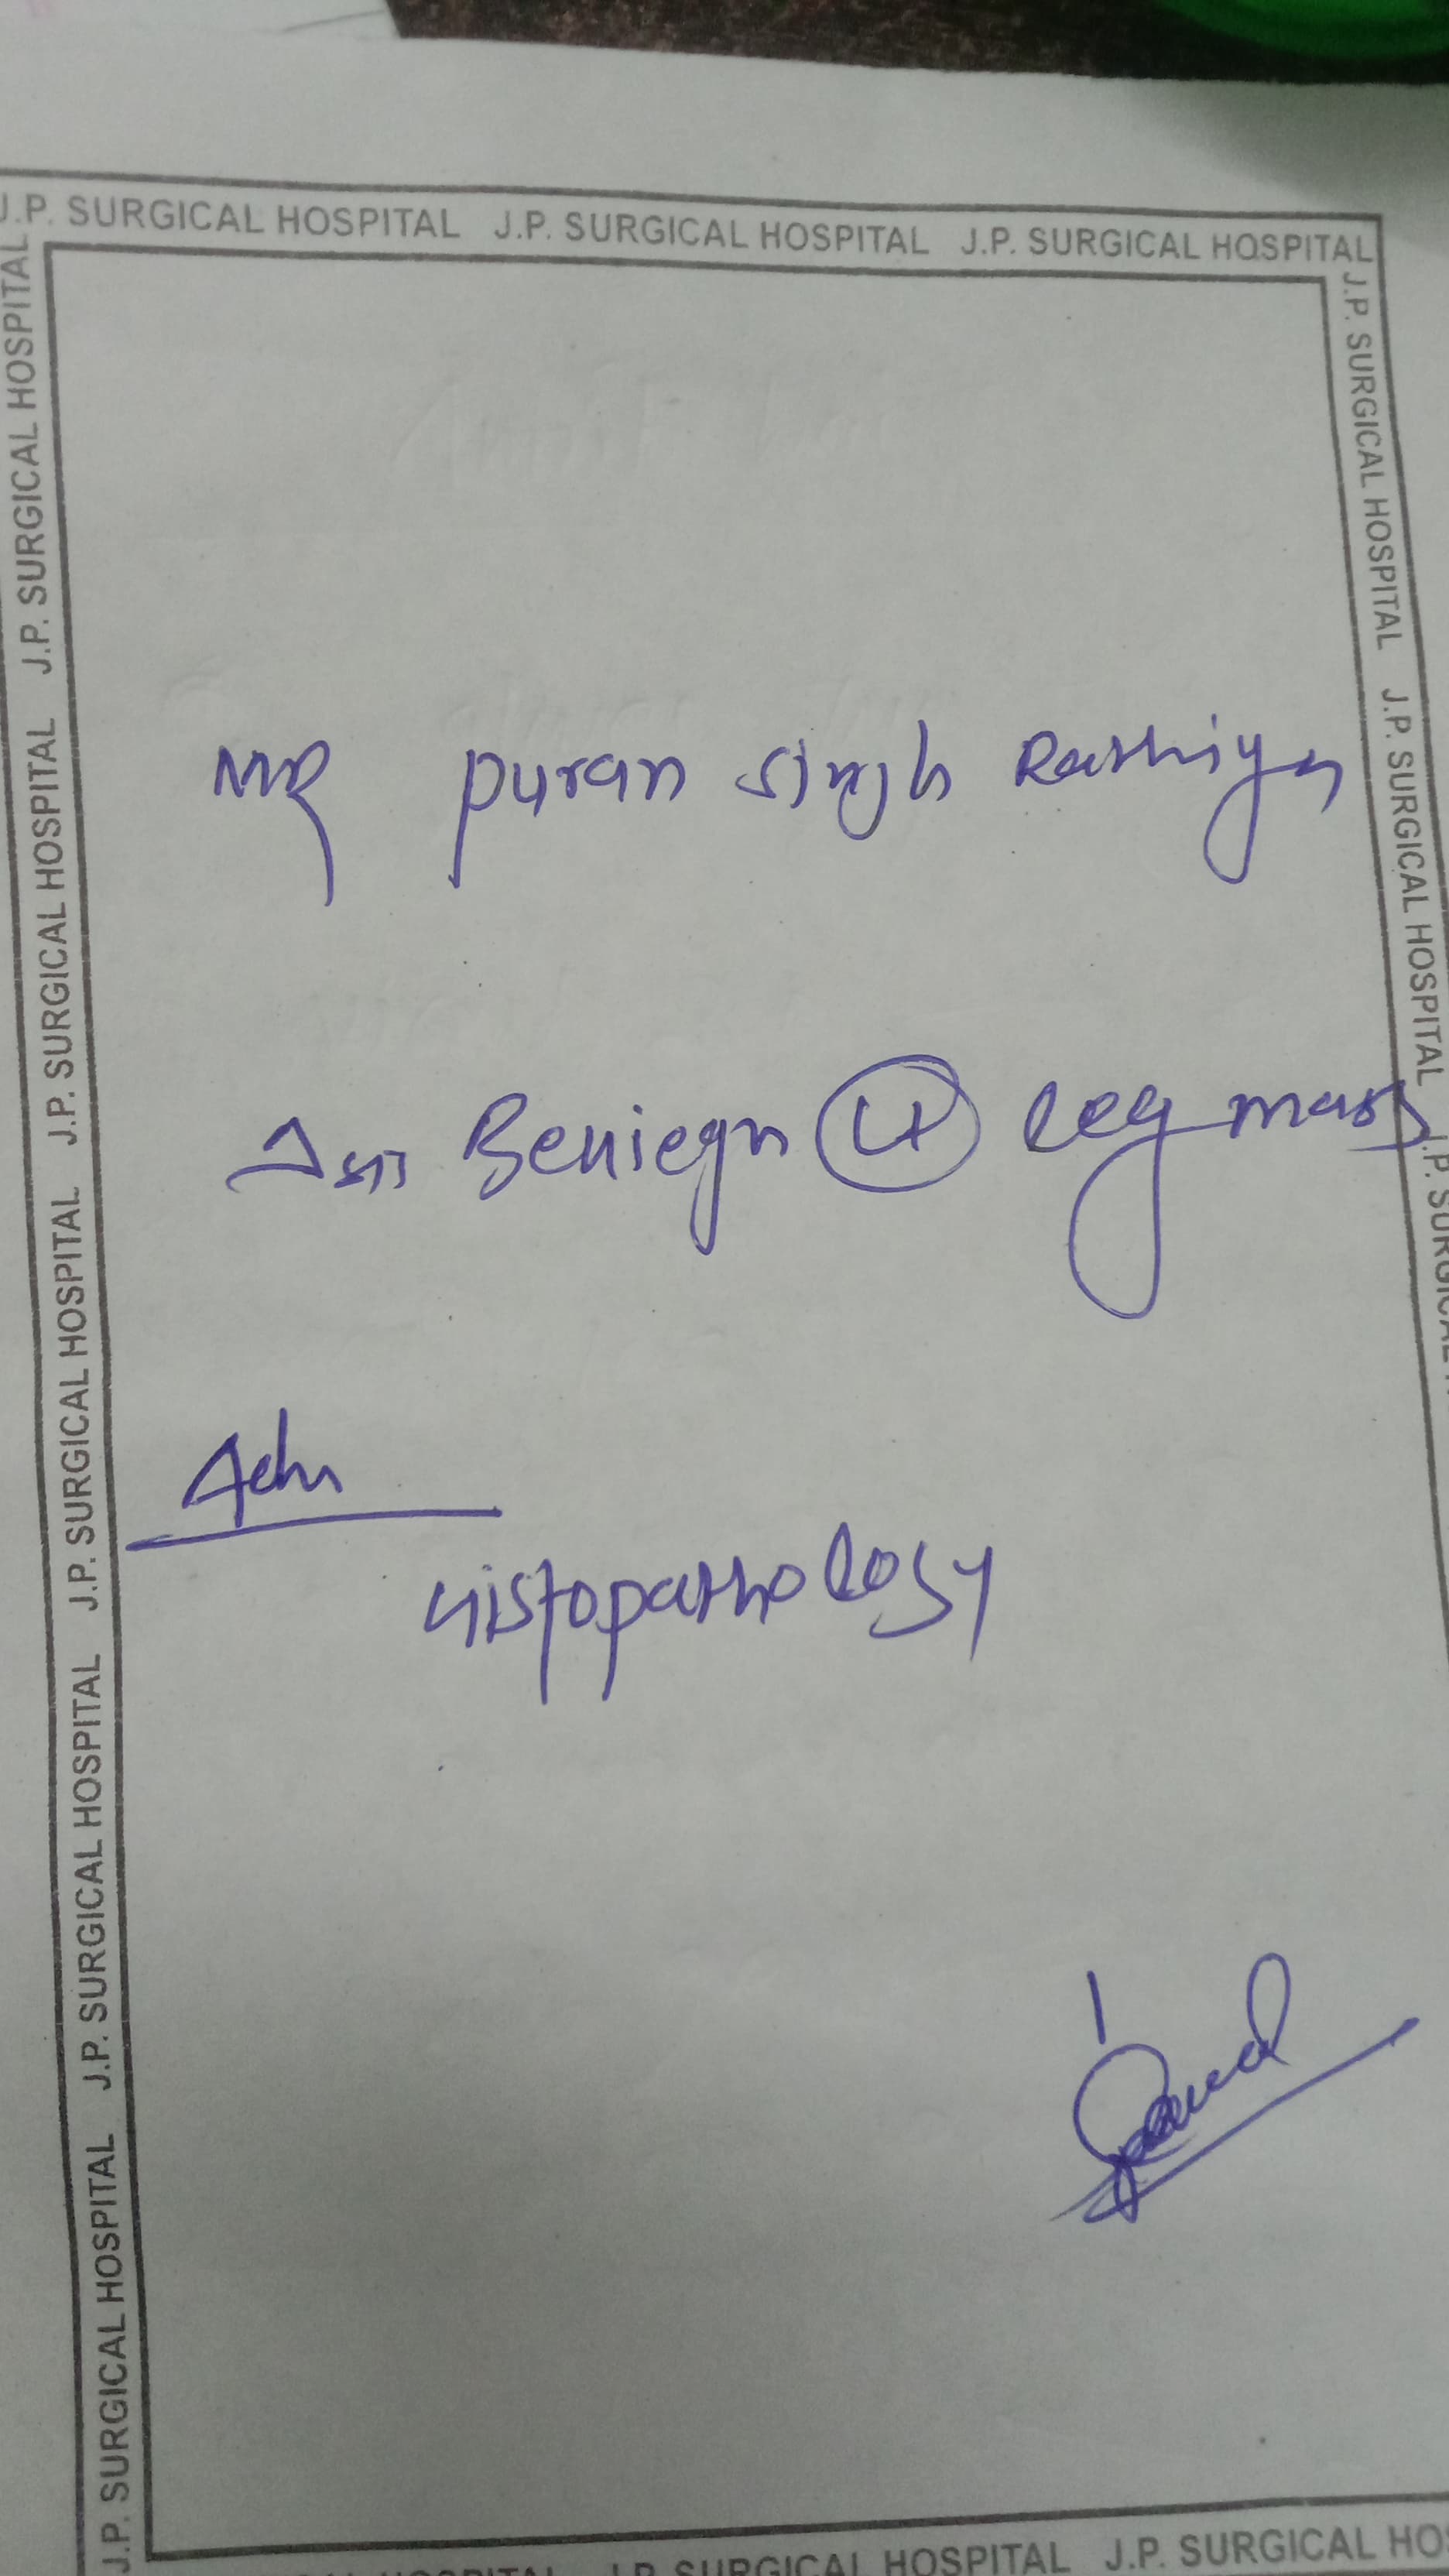 J.P. SURGICAL HOSPITAL J.P. SURGICAL HOSPITAL J.P. SURGICAL HOSPITAL
J.P. SURGICAL HOSPITAL J.P. SURGICAL HOSPITAL J.P. SURGICAL HOSPITAL J.P. SURGICAL HOSPITAL J.P. SURGICAL HOSPITAL
J.P. SURGICAL HOSPITAL J.P. SURGICAL HOSPITAL J.P. SURGICAL
MR Puran Singh Rathiya
Beniegn Lt leg mass
Adv
Histopathology
HOSPITAL J.P. SURGICAL HOSPITAL J.P. SURGICAL HO